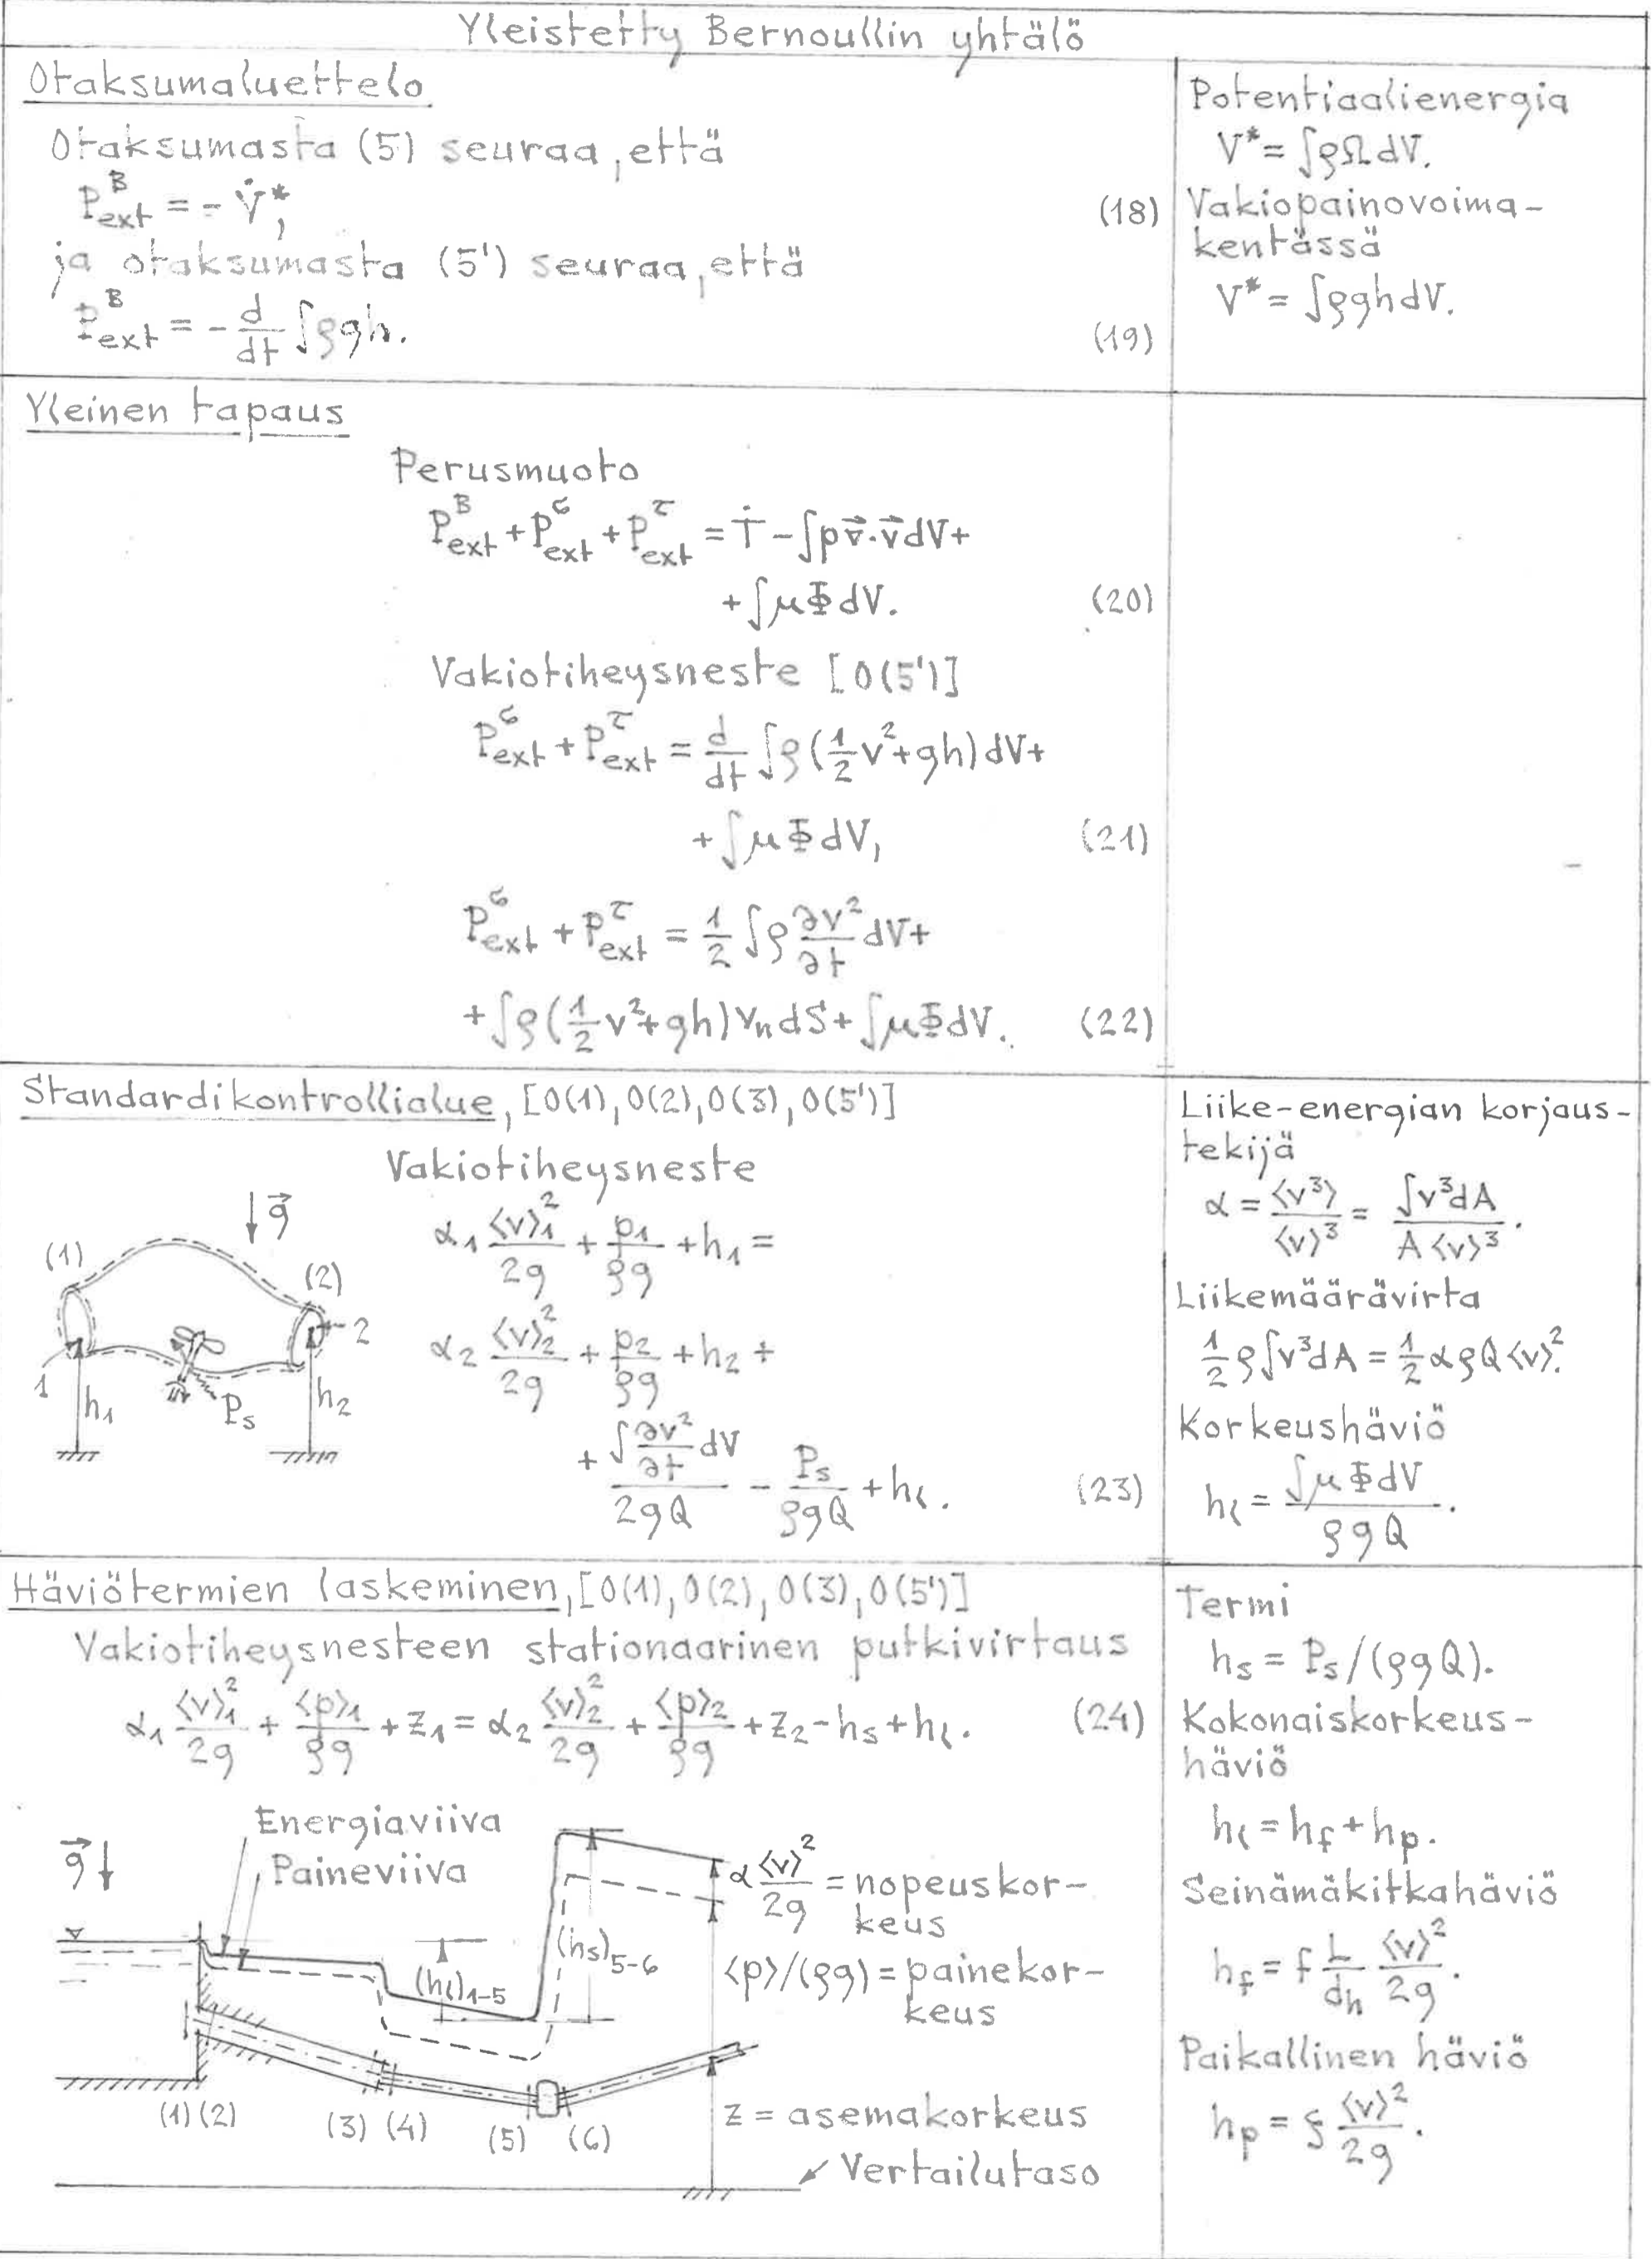 Yleistetty Bernoullin yhtälö
Otaksumaluettelo
Otaksumasta (5) seuraa, että
P_ext^B = - V̇*, (18)
ja otaksumasta (5') seuraa, että
P_ext^B = - d/dt ∫ρgh. (19)
Potentiaalienergia
V* = ∫ρΩdV.
Vakiopainovoima-
kentässä
V* = ∫ρghdV.
Yleinen tapaus
Perusmuoto
P_ext^B + P_ext^σ + P_ext^τ = Ṫ - ∫p∇⃗·v⃗dV+
+ ∫μΦdV. (20)
Vakiotiheysneste [O(5')]
P_ext^σ + P_ext^τ = d/dt ∫ρ(1/2 v²+gh)dV+
+ ∫μΦdV, (21)
P_ext^σ + P_ext^τ = 1/2 ∫ρ ∂v²/∂t dV+
+ ∫ρ(1/2 v²+gh)v_n dS + ∫μΦdV. (22)
Standardikontrollialue, [O(1), O(2), O(3), O(5')]
Vakiotiheysneste
α₁ ⟨v⟩₁²/2g + p₁/ρg + h₁ =
α₂ ⟨v⟩₂²/2g + p₂/ρg + h₂ +
+ ∫ ∂v²/∂t dV / 2gQ - P_s/ρgQ + h_l. (23)
g⃗
(1)
(2)
2
1
h₁
P_s
h₂
Liike-energian korjaus-
tekijä
α = ⟨v³⟩/⟨v⟩³ = ∫v³dA / A⟨v⟩³.
Liikemäärävirta
1/2 ρ∫v³dA = 1/2 αρQ⟨v⟩².
Korkeushäviö
h_l = ∫μΦdV / ρgQ.
Häviötermien laskeminen, [O(1), O(2), O(3), O(5')]
Vakiotiheysnesteen stationaarinen putkivirtaus
α₁ ⟨v⟩₁²/2g + ⟨p⟩₁/ρg + z₁ = α₂ ⟨v⟩₂²/2g + ⟨p⟩₂/ρg + z₂ - h_s + h_l. (24)
Energiaviiva
g⃗
Paineviiva
α ⟨v⟩²/2g = nopeuskor-
keus
(h_s)₅₋₆
(h_l)₁₋₅
⟨p⟩/(ρg) = painekor-
keus
(1) (2)
(3) (4)
(5) (6)
z = asemakorkeus
Vertailutaso
Termi
h_s = P_s/(ρgQ).
Kokonaiskorkeus-
häviö
h_l = h_f + h_p.
Seinämäkitkahäviö
h_f = f L/d_h ⟨v⟩²/2g.
Paikallinen häviö
h_p = ξ ⟨v⟩²/2g.